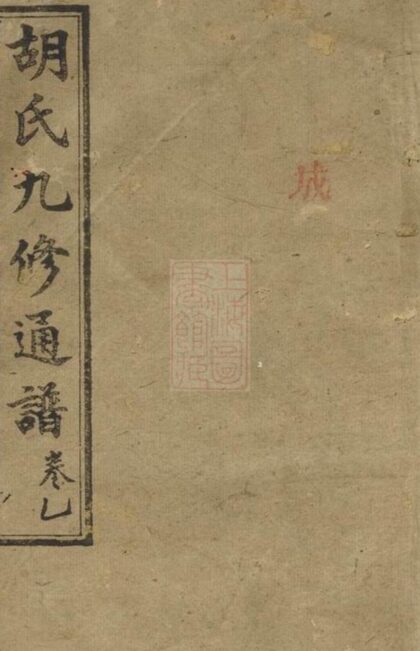 城
上海圖
書館藏
胡氏九修通譜 卷